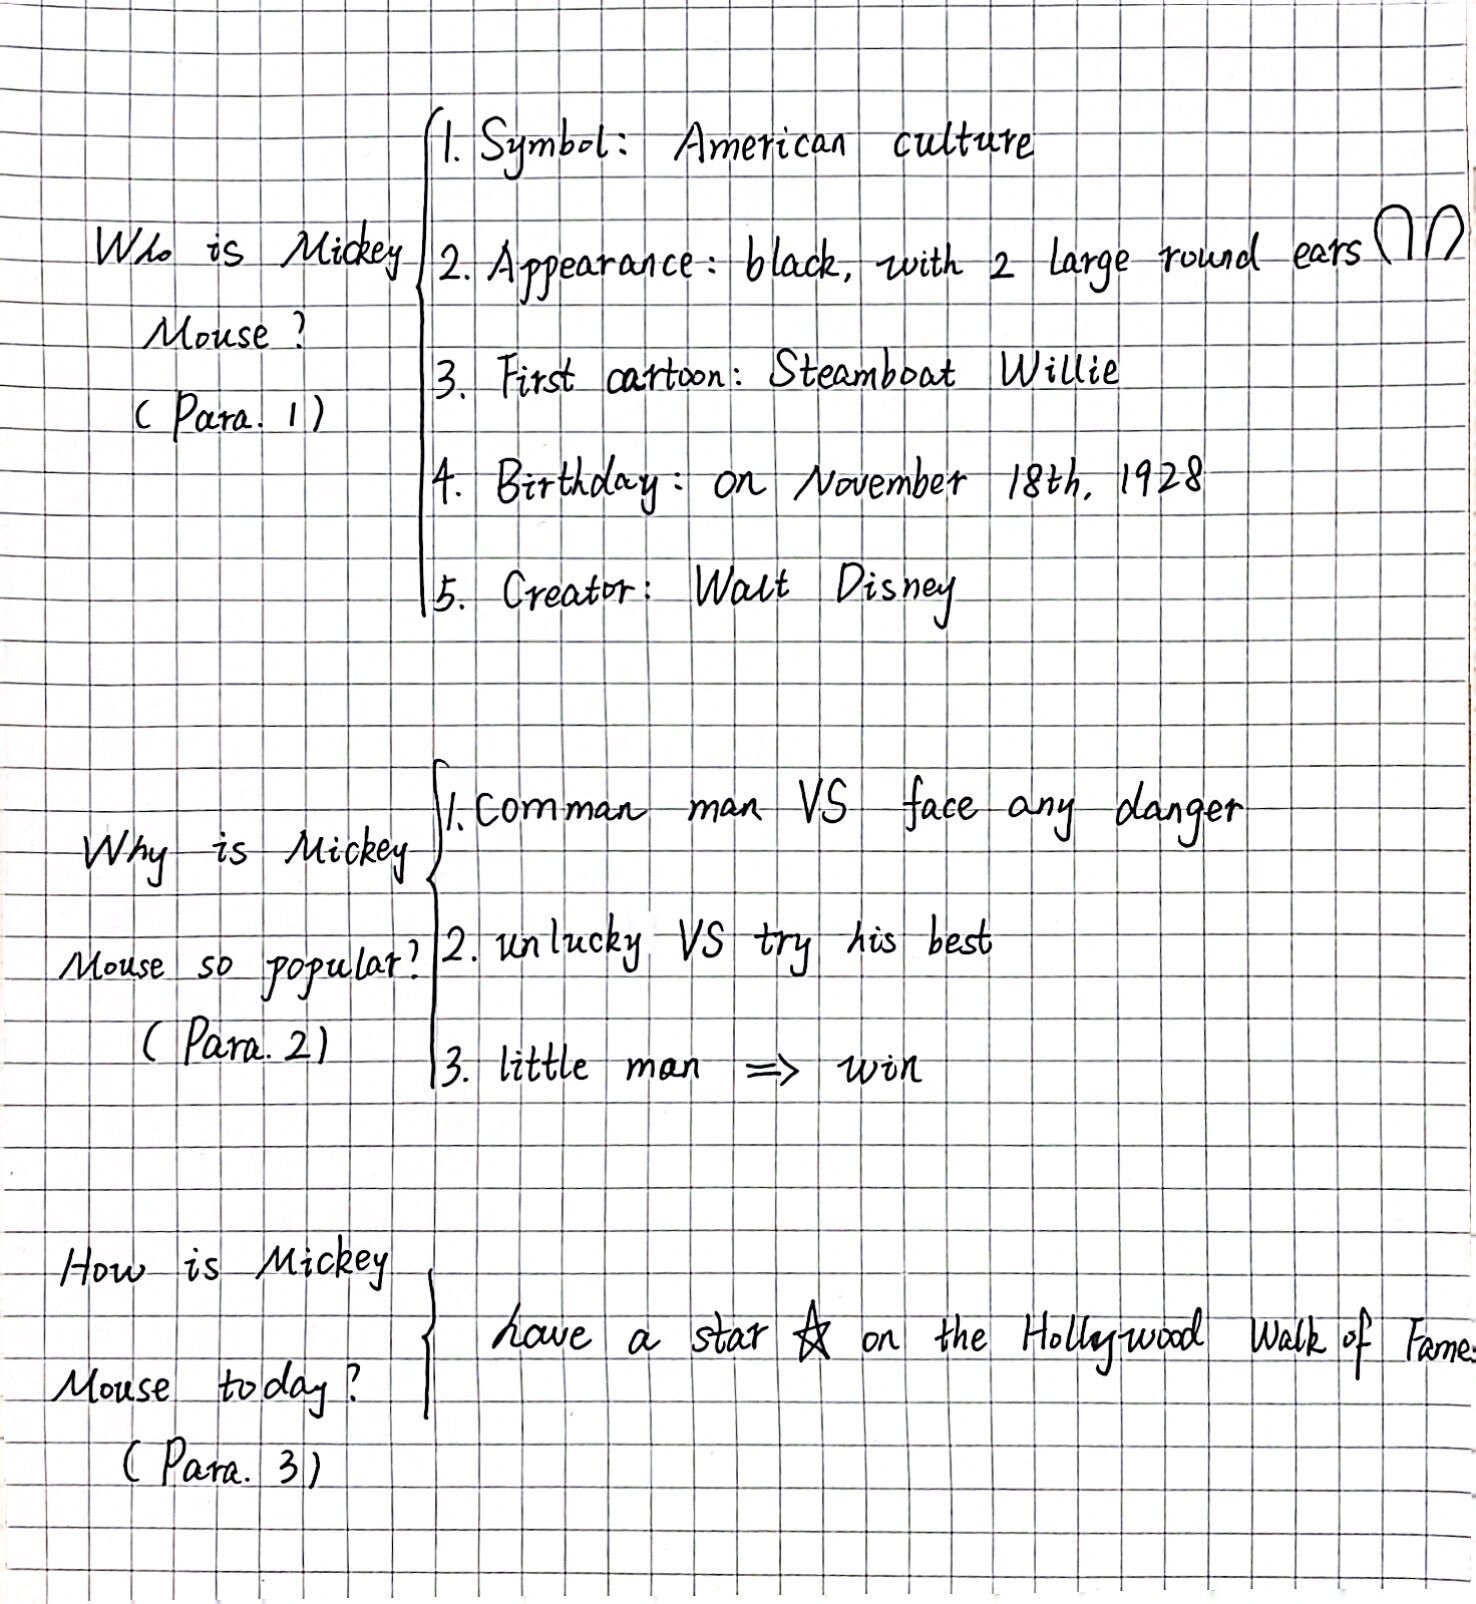 Who is Mickey
Mouse?
(Para. 1)
1. Symbol: American culture
2. Appearance: black, with 2 large round ears
3. First cartoon: Steamboat Willie
4. Birthday: on November 18th, 1928
5. Creator: Walt Disney
Why is Mickey
Mouse so popular?
(Para. 2)
1. Comman man VS face any danger
2. unlucky VS try his best
3. little man => win
How is Mickey
Mouse today?
(Para. 3)
have a star ☆ on the Hollywood Walk of Fame.